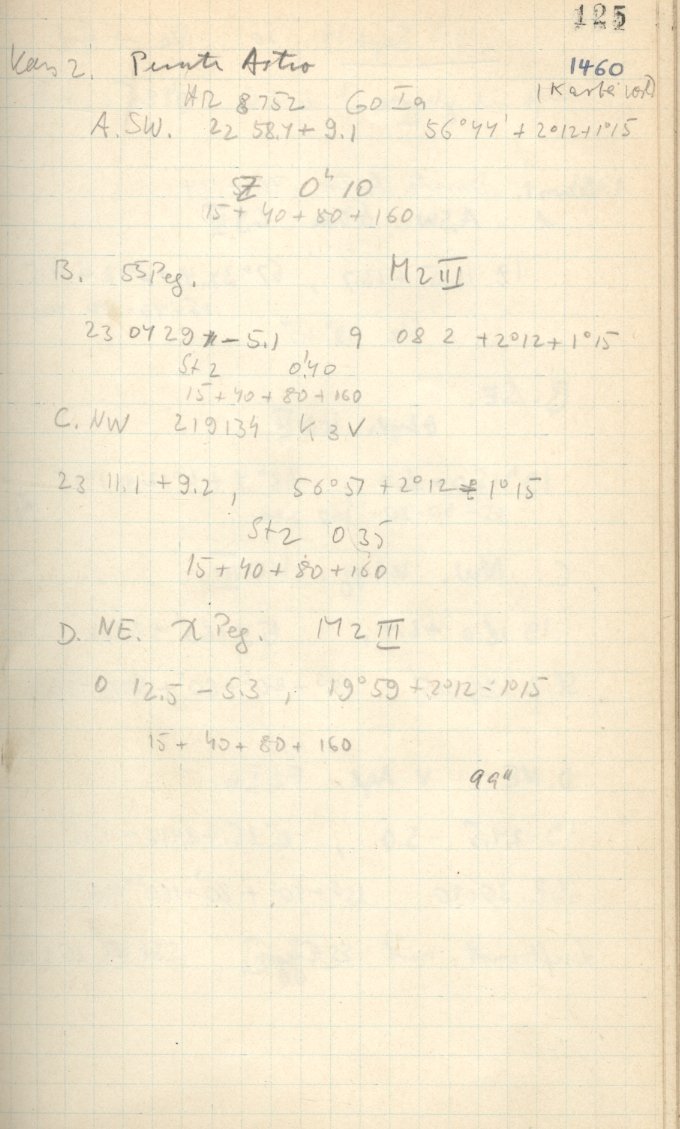 125
Kas 2. Astro 1460
HR 8752 G0 Ia
A. SW. 22 58.4 + 9.1 56°44' + 2°12 + 1°15
0ʰ 10
15 + 40 + 80 + 160
B. 55 Peg. M2 III
23 04 29 - 5.1 9 08 2 + 2°12 + 1°15
St 2 0 40
15 + 40 + 80 + 160
C. NW 219134 K3V
23 11.1 + 9.2 , 56°57 + 2°12 1°15
St 2 0 35
15 + 40 + 80 + 160
D. NE. χ Peg. M2 III
0 12.5 - 5.3 , 19°59 + 2°12 - 1°15
15 + 40 + 80 + 160